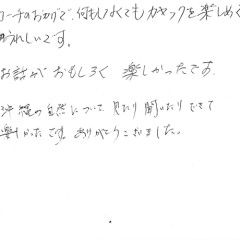 コーチのおかげで、何もしなくてもカヤックを楽しめて
うれしいです。
お話が おもしろく 楽しかったです。
沖縄の自然について、見たり聞いたりできて
楽しかったです。ありがとうございました。